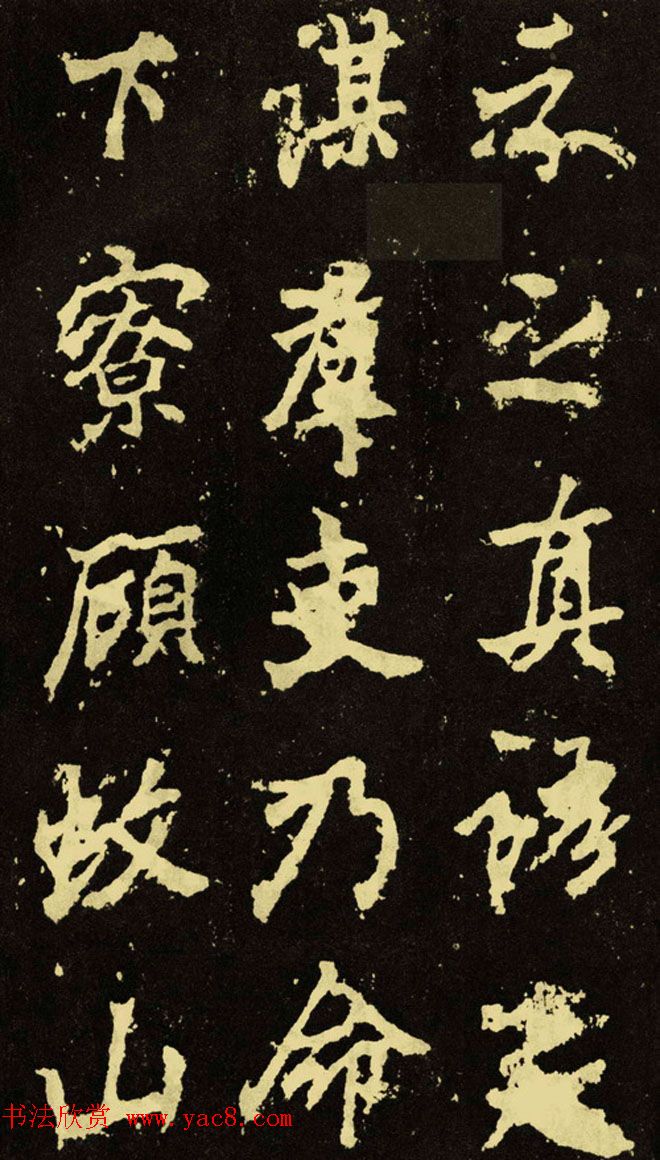 示之真語爰
謀羣吏乃命
下寮顧蚊山
书法欣赏 www.yac8.com